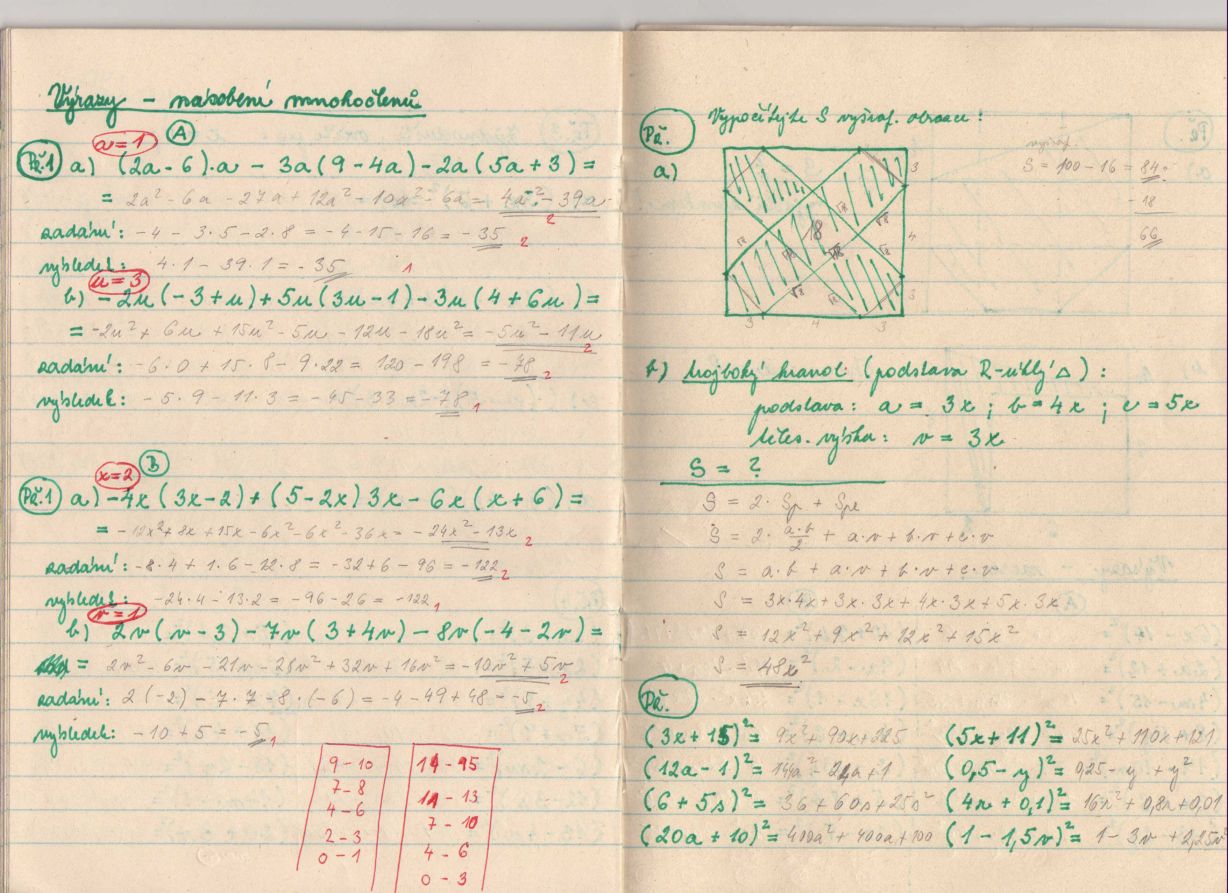 Výrazy – násobení mnohočlenů
a=1 A
Př.1 a) (2a-6).a - 3a(9-4a) - 2a(5a+3) =
= 2a² - 6a - 27a + 12a² - 10a² - 6a = 4a² - 39a 2
zadání: -4 - 3·5 - 2·8 = -4 - 15 - 16 = -35 2
výsledek: 4·1 - 39·1 = -35 1
u=3
b) -2u(-3+u) + 5u(3u-1) - 3u(4+6u) =
= -2u² + 6u + 15u² - 5u - 12u - 18u² = -5u² - 11u 2
zadání: -6·0 + 15·8 - 9·22 = 120 - 198 = -78 2
výsledek: -5·9 - 11·3 = -45 - 33 = -78 1
x=2 B
Př.1 a) -4x(3x-2) + (5-2x)3x - 6x(x+6) =
= -12x² + 8x + 15x - 6x² - 6x² - 36x = -24x² - 13x 2
zadání: -8·4 + 1·6 - 12·8 = -32 + 6 - 96 = -122 2
výsledek: -24·4 - 13·2 = -96 - 26 = -122 1
v=1
b) 2v(v-3) - 7v(3+4v) - 8v(-4-2v) =
= 2v² - 6v - 21v - 28v² + 32v + 16v² = -10v² + 5v 2
zadání: 2(-2) - 7·7 - 8·(-6) = -4 - 49 + 48 = -5 2
výsledek: -10 + 5 = -5 1
9 - 10
7 - 8
4 - 6
2 - 3
0 - 1
14 - 15
11 - 13
7 - 10
4 - 6
0 - 3
Př. Vypočítejte S vyšraf. obrazce:
a)
vyšraf.
S = 100 - 16 = 84
- 18
66
18
3
4
3
3 4 3
b) trojboký hranol (podstava R-úhlý △):
podstava: a = 3x ; b = 4x ; c = 5x
těles. výška: v = 3x
S = ?
S = 2·Sp + Spl
S = 2· a·b/2 + a·v + b·v + c·v
S = a·b + a·v + b·v + c·v
S = 3x·4x + 3x·3x + 4x·3x + 5x·3x
S = 12x² + 9x² + 12x² + 15x²
S = 48x²
Př.
(3x+15)² = 9x² + 90x + 225 (5x+11)² = 25x² + 110x + 121
(12a-1)² = 144a² - 24a + 1 (0,5-y)² = 0,25 - y + y²
(6+5s)² = 36 + 60s + 25s² (4r+0,1)² = 16r² + 0,8r + 0,01
(20a+10)² = 400a² + 400a + 100 (1-1,5v)² = 1 - 3v + 2,25v